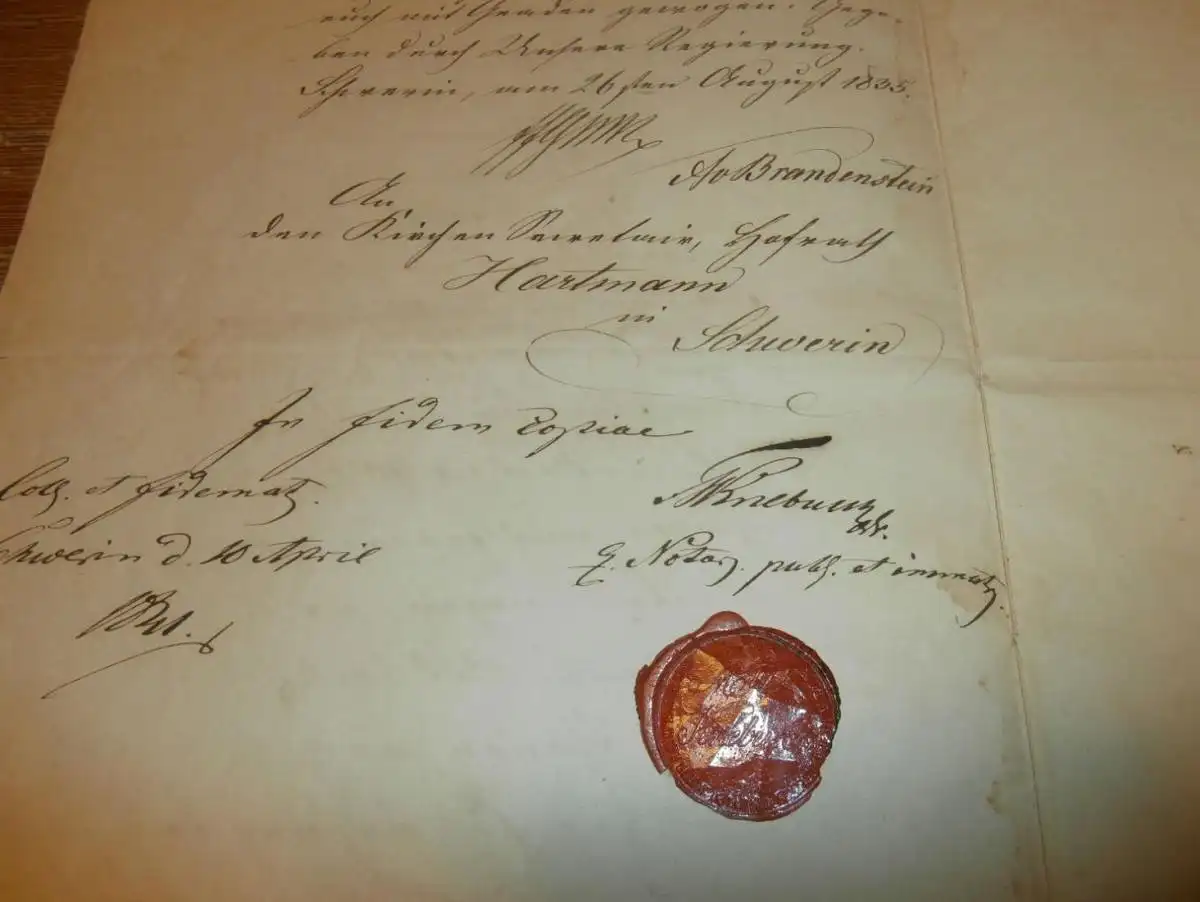 euch mit Gnaden gewogen. Gege-
ben durch Unsere Regierung.
Schwerin, am 26sten August 1835.
AvBrandenstein
An
den Kirchen Secretair, Hofrath
Hartmann
in
Schwerin
In fidem copiae
Coll. et fidemat.
Schwerin d. 10 April
E. Notar. publ. et immatr.